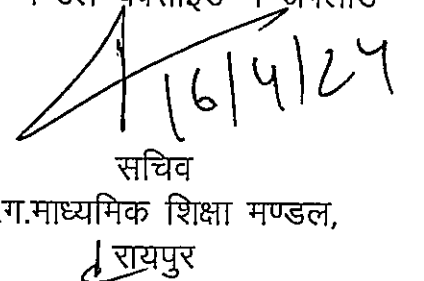 16/4/24
सचिव
.ग.माध्यमिक शिक्षा मण्डल,
रायपुर